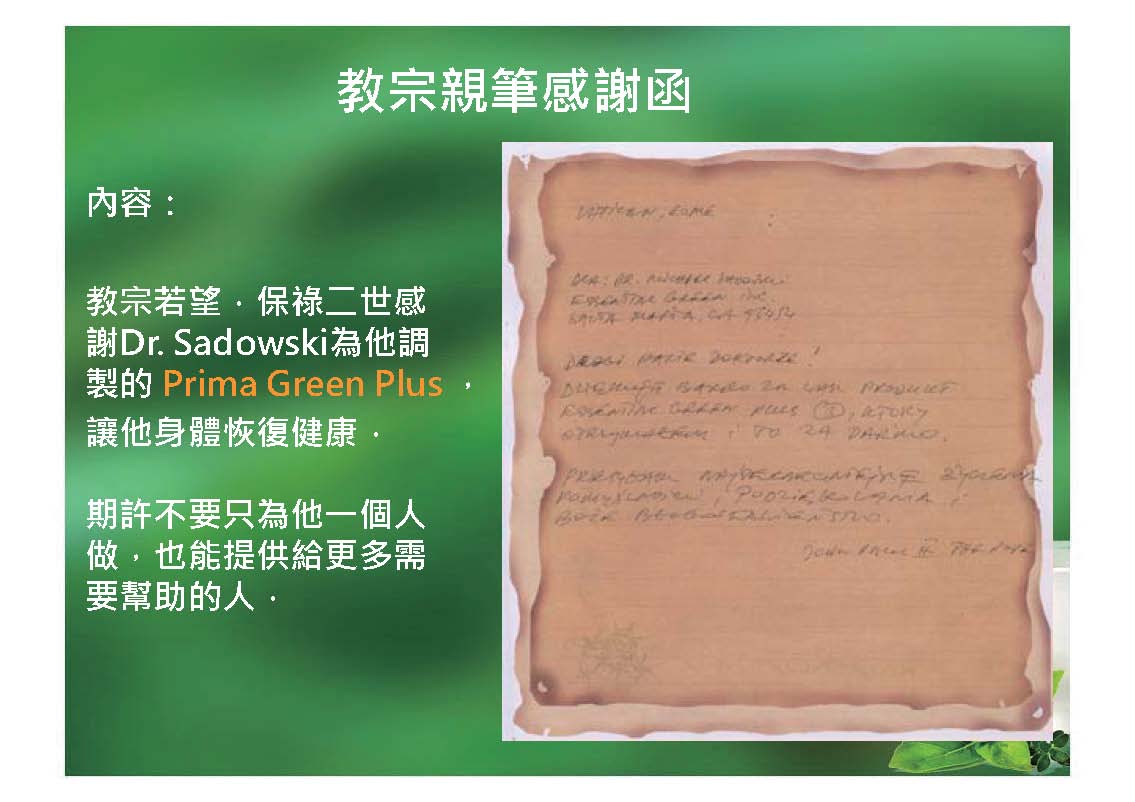 教宗親筆感謝函
內容：
教宗若望．保祿二世感
謝Dr. Sadowski為他調
製的 Prima Green Plus ，
讓他身體恢復健康．
期許不要只為他一個人
做，也能提供給更多需
要幫助的人．
VATICAN, ROME
DLA: DR.
ESSENTIAL GREEN INC.
SANTA MARIA, CA
DROGI PANIE DOKTORZE!
BARDZO ZA PRODUKT
GREEN PLUS KTORY
I TO ZA DARMO.
I
JOHN PAUL II THE POPE